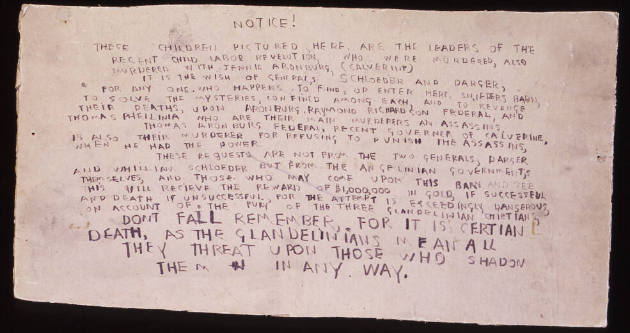 NOTICE!
THESE CHILDREN PICTURED HERE, ARE THE LEADERS OF THE
RECENT CHILD LABOR REVELUTION, WHO WERE MURDERED, ALSO
MURDERED WITH JENNIE ARONBURG, (CALVERINE)
IT IS THE WISH OF GENERALS, SCHLOEDER AND DARGER,
FOR ANY ONE, WHO HAPPENS TO FIND, OR ENTER HERE, BARN,
TO SOLVE THE MYSTERIES, CONFINED AMONG EACH, AND TO REVENGE
THEIR DEATHS, UPON ARONBURG, RAYMOND RICHARDSON FEDERAL, AND
THOMAS PHEILINIA WHO ARE THEIR MAIN MURDERERS AN ASSASSINS.
THOMAS ARONBURG FEDERAL, RECENT GOVERNER OF CALVERINE,
IS ALSO THEIR MURDERER FOR REFUSING TO PUNISH THE ASSASSINS,
WHEN HE HAD THE POWER.
THESE REQUESTS ARE NOT FROM THE TWO GENERALS, DARGER
AND WHILLIAN SCHLOEDER BUT FROM THE ANGELINIAN GOVERNMENTS
THEMSELVES, AND THOSE WHO MAY COME UPON THIS BARN AND SEE
THIS WILL RECIEVE THE REWARD OF $1,000,000 IN GOLD, IF SUCCESSFUL
AND DEATH IF UNSUCCESSFUL, FOR THE ATTEMPT IS EXCEEDINGLY DANGEROUS
ON ACCOUNT OF THE OF THE THREE GLANDELINIAN
DONT FALL REMEMBER, FOR IT IS CERTIAN
DEATH, AS THE GLANDELINIANS MEAN ALL
THEY THREAT UPON THOSE WHO SHADON
THEM IN ANY WAY.